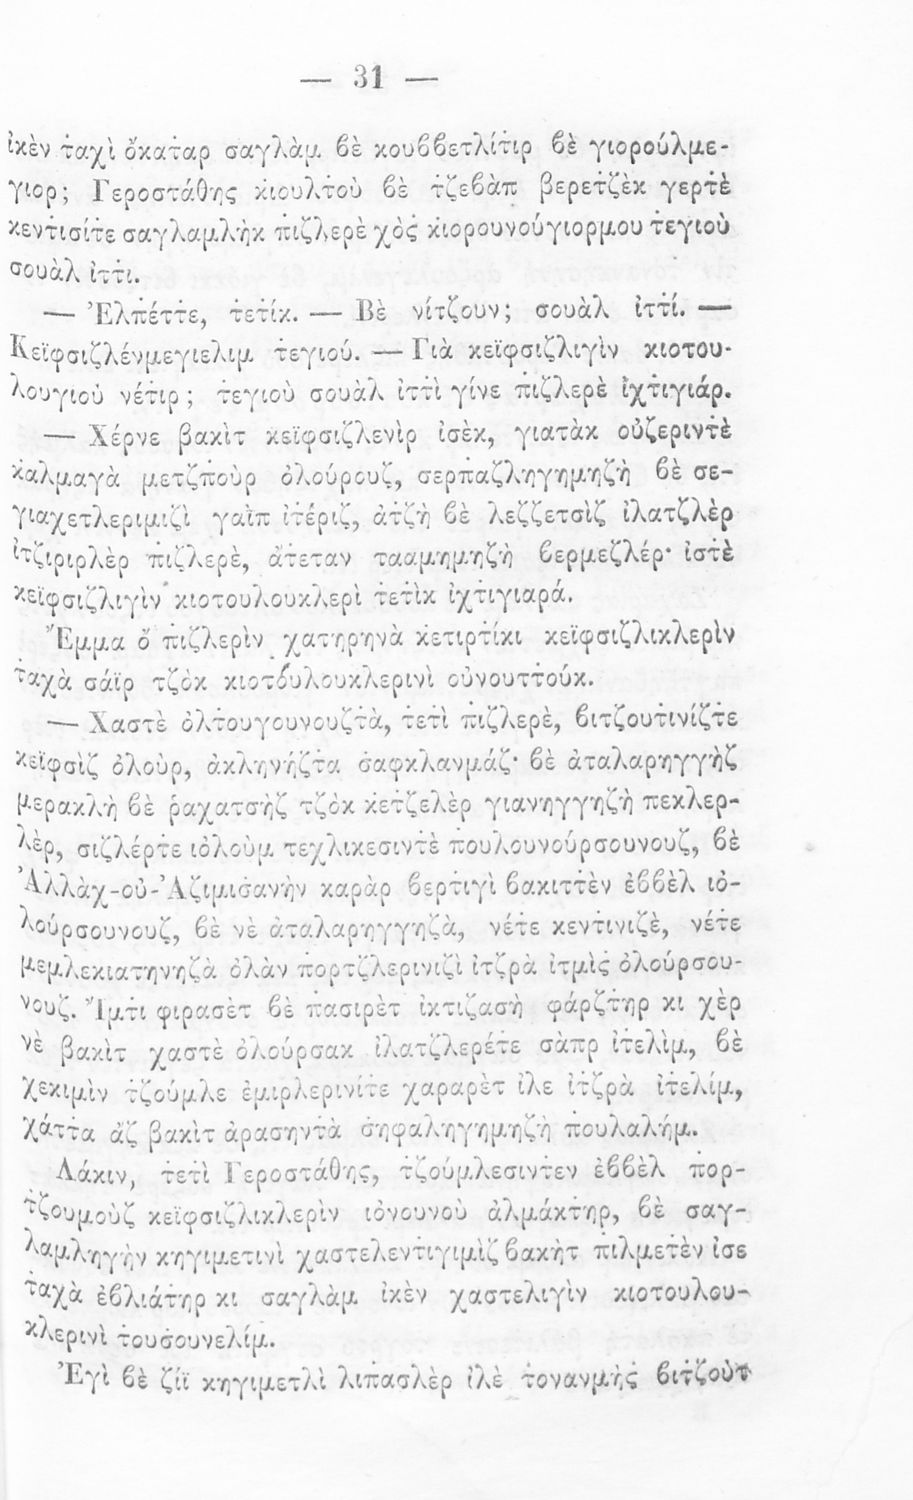 — 31 —
ἰκὲν ταχὶ ὄκαταρ σαγλὰμ βὲ κουββετλίτιρ βὲ γιορούλμε-
γιορ; Γεροστάθης κιουλτοὺ βὲ τζεβὰπ βερετζὲκ γερτὲ
κεντισίτε σαγλαμλὴκ πιζλερὲ χὸς κιορουνούγιορμου τεγιοὺ
σουὰλ ἰττι.
— Ἐλπέττε, τετίκ. — Βὲ νίτζουν; σουὰλ ἰττί. —
Κεϊφσιζλένμεγιελιμ τεγιού. — Γιὰ κεϊφσιζλιγὶν κιοτου-
λουγιοὺ νέτιρ; τεγιοὺ σουὰλ ἰττὶ γίνε πιζλερὲ ἰχτιγιάρ.
— Χέρνε βακὶτ κεϊφσιζλενὶρ ἰσὲκ, γιατὰκ οὐζεριντὲ
καλμαγὰ μετζποὺρ ὀλούρουζ, σερπαζληγημηζὴ βὲ σε-
γιαχετλεριμιζὶ γαῒπ ἰτέριζ, ἀτζὴ βὲ λεζζετσὶζ ἰλατζλὲρ
ἰτζιριρλὲρ πιζλερὲ, ἀτεταν τααμημηζὴ βερμεζλέρ· ἰστὲ
κεϊφσιζλιγὶν κιοτουλουκλερὶ τετὶκ ἰχτιγιαρά.
Ἔμμα ὄ πιζλερὶν χατηρηνὰ κετιρτίκι κεϊφσιζλικλερὶν
ταχὰ σάϊρ τζὸκ κιοτουλουκλερινὶ οὐνουττούκ.
— Χαστὲ ὀλτουγουνουζτὰ, τετὶ πιζλερὲ, βιτζουτινίζτε
κεϊφσὶζ ὀλοὺρ, ἀκληνήζτα σαφκλανμάζ· βὲ ἀταλαρηγγὴζ
μερακλὴ βὲ ῥαχατσὴζ τζὸκ κετζελὲρ γιανηγγηζὴ πεκλερ-
λὲρ, σιζλέρτε ἰολοὺμ τεχλικεσιντὲ πουλουνούρσουνουζ, βὲ
Ἀλλὰχ-οὐ-Ἀζιμισανὴν καρὰρ βερτιγὶ βακιττὲν ἐββὲλ ἰο-
λούρσουνουζ, βὲ νὲ ἀταλαρηγγηζὰ, νέτε κεντινιζὲ, νέτε
μεμλεκιατηνηζὰ ὀλὰν πορτζλερινιζὶ ἰτζρὰ ἰτμὶς ὀλούρσου-
νουζ. Ἴμτι φιρασὲτ βὲ πασιρὲτ ἰκτιζασὴ φάρζτηρ κι χὲρ
νὲ βακὶτ χαστὲ ὀλούρσακ ἰλατζλερέτε σὰπρ ἰτελὶμ, βὲ
χεκιμὶν τζούμλε ἐμιρλερινίτε χαραρὲτ ἰλε ἰτζρὰ ἰτελίμ,
χάττα ἀζ βακὶτ ἀρασηντὰ σηφαληγημηζὴ πουλαλήμ.
Λάκιν, τετὶ Γεροστάθης, τζούμλεσιντεν ἐββὲλ πορ-
τζουμοὺζ κεϊφσιζλικλερὶν ἰονουνοὺ ἀλμάκτηρ, βὲ σαγ-
λαμληγὴν κηγιμετινὶ χαστελεντιγιμὶζ βακὴτ πιλμετὲν ἰσε
ταχὰ ἐβλιάτηρ κι σαγλὰμ ἰκὲν χαστελιγὶν κιοτουλου-
κλερινὶ τουσουνελίμ.
Ἐγὶ βὲ ζίϊ κηγιμετλὶ λιπασλὲρ ἰλὲ τονανμὴς βιτζοὺτ